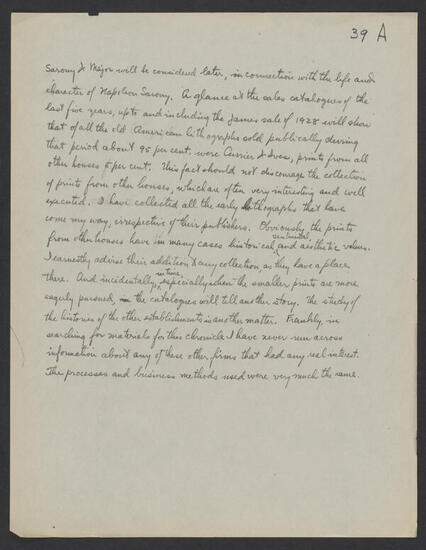 39 A
Sarony & Major will be considered later, in connection with the life and
character of Napoleon Sarony. A glance at the sales catalogues of the
last five years, up to and including the James sale of 1928 will show
that of all the old American lithographs sold publically during
that period about 95 per cent. were Currier & Ives, prints from all
other houses 5 per cent. This fact should not discourage the collection
of prints from other houses, which are often very interesting and well
executed. I have collected all the early lithographs that have
come my way, irrespective of their publishers. Obviously, the prints
sentimental,
from other houses have in many cases historical, and aisthetic values.
I earnestly advise their addition to any collection, as they have a place
there. And incidentally, in time, especially when the smaller prints are more
eagerly pursued, the catalogues will tell another story. The study of
the histories of the other establishments is another matter. Frankly, in
searching for materials for this chronicle I have never run across
information about any of these other firms that had any real interest.
The processes and business methods used were very much the same.